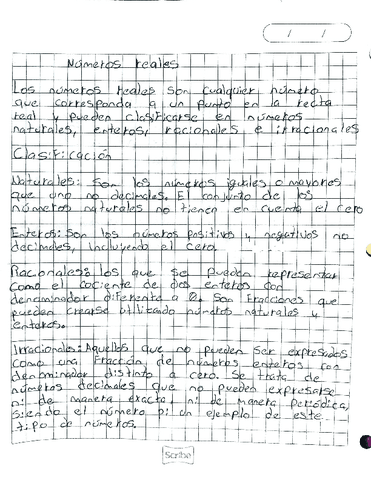 Números reales
Los números reales son cualquier número
que corresponda a un punto en la recta
real y pueden clasificarse en números
naturales, enteros, racionales e irracionales
Clasificación
Naturales: Son los números iguales o mayores
que uno no decimales. El conjunto de los
números naturales no tienen en cuenta el cero
Enteros: Son los números positivos y negativos no
decimales, incluyendo el cero.
Racionales: los que se pueden representar
como el cociente de dos enteros con
denominador diferente a 0. Son fracciones que
pueden crearse utilizando números naturales y
enteros.
Irracionales: Aquellos que no pueden ser expresados
como una fracción de números enteros con
denominador distinto a cero. Se trata de
números decimales que no pueden expresarse
ni de manera exacta, ni de manera periódica,
siendo el número pi un ejemplo de este
tipo de números.
Scribe